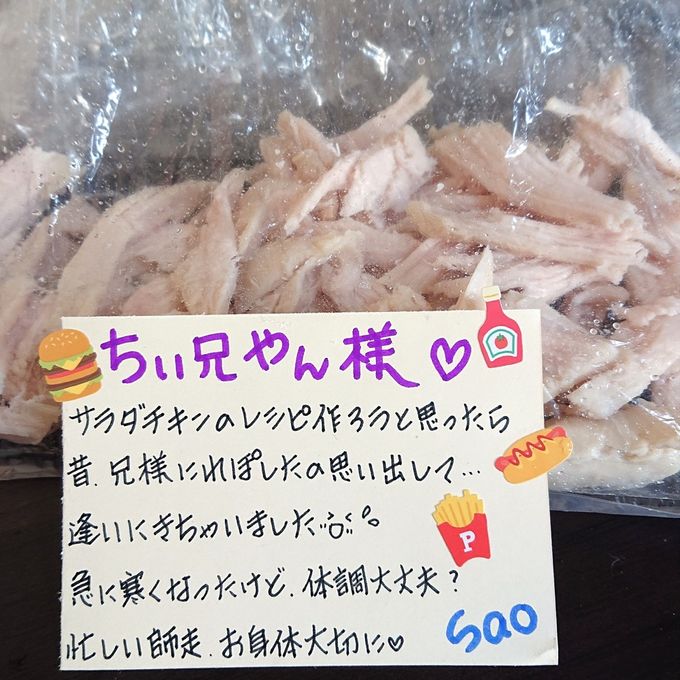 ちぃ兄やん様♡
サラダチキンのレシピ作ろうと思ったら
昔、兄様にれぽしたの思い出して…
逢いにきちゃいました
急に寒くなったけど、体調大丈夫？
忙しい師走、お身体大切に♡
Sao
P